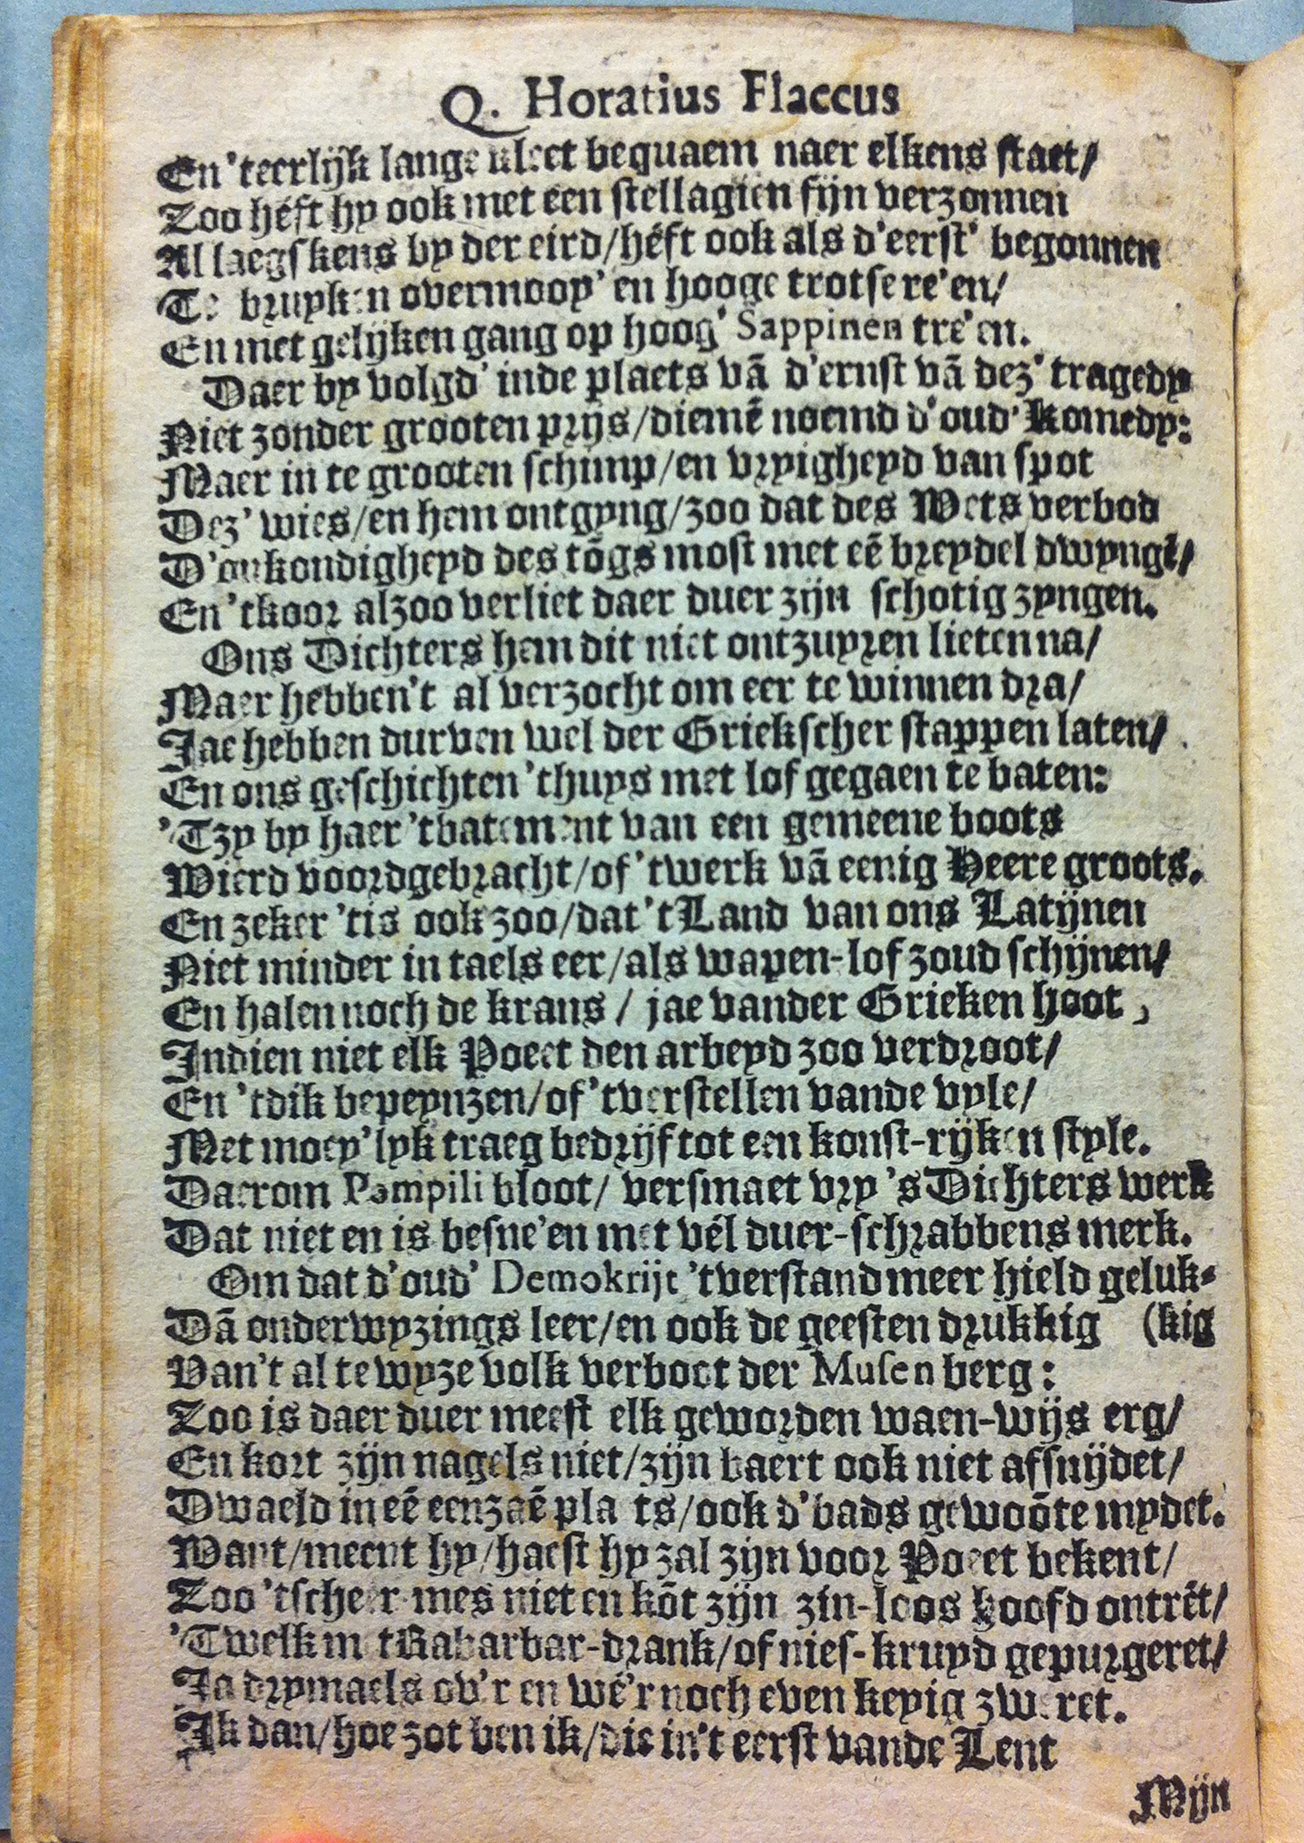 Q. Horatius Flaccus
En 'teerlijk lange kleet bequaem naer elkens staet/
Zoo héft hy ook met een stellagien fijn verzonnen
Al laegskens by der eird/héft ook als d'eerst' begonnen
Te bruyken overmooy' en hooge trotse re'en/
En met gelijken gang op hoog' Sappinen tre'en.
Daer by volgd' inde plaets vā d'ernst vā dez' tragedy
Niet zonder grooten prijs/diemē noemd d'oud' Komedy:
Maer in te grooten schimp/en vryigheyd van spot
Dez' wies/en hem ontgyng/zoo dat des Wets verbod
D'onkondigheyd des tōgs most met eē breydel dwyngē/
En 'tkoor alzoo verliet daer duer zijn schotig zyngen.
Ons Dichters hem dit niet ontzuyren lieten na/
Maer hebben't al verzocht om eer te winnen dra/
Jae hebben durven wel der Griekscher stappen laten/
En ons geschichten 'thuys met lof gegaen te baten:
'Tzy by haer 'tbatement van een gemeene boots
Wierd voordgebracht/of 'twerk vā eenig Heere groots.
En zeker 'tis ook zoo/dat 't Land van ons Latijnen
Niet minder in taels eer/als wapen-lof zoud schijnen/
En halen noch de krans / jae vander Grieken hoot,
Indien niet elk Poeet den arbeyd zoo verdroot/
En 'tdik bepeynzen/of 'tverstellen vande vyle/
Met moey'lyk traeg bedrijf tot een konst-rijken style.
Daerom Pampili bloot/ versmaet vry 's Dichters werk
Dat niet en is besne'en met vél duer-schrabbens merk.
Om dat d'oud' Demokrijt 'tverstand meer hield geluk-
Dā onderwyzings leer/en ook de geesten drukkig (kig
Van't al te wyze volk verboot der Musen berg:
Zoo is daer duer meest elk geworden waen-wijs erg/
En kort zijn nagels niet/zijn baert ook niet afsnijdet/
Dwaeld in eē eenzaē plaets/ook d'bads gewoōte mydet.
Want/meent hy/haest hy zal zijn voor Poeet bekent/
Zoo 'tscheer-mes niet en kōt zijn zin-loos hoofd ontrēt/
'Twelk met Rabarbar-drank/of nies-kruyd gepurgeret/
Ja drymaels ov'r en wé'r noch even keyig zweret.
Ik dan/hoe zot ben ik/die in't eerst vande Lent
Mijn